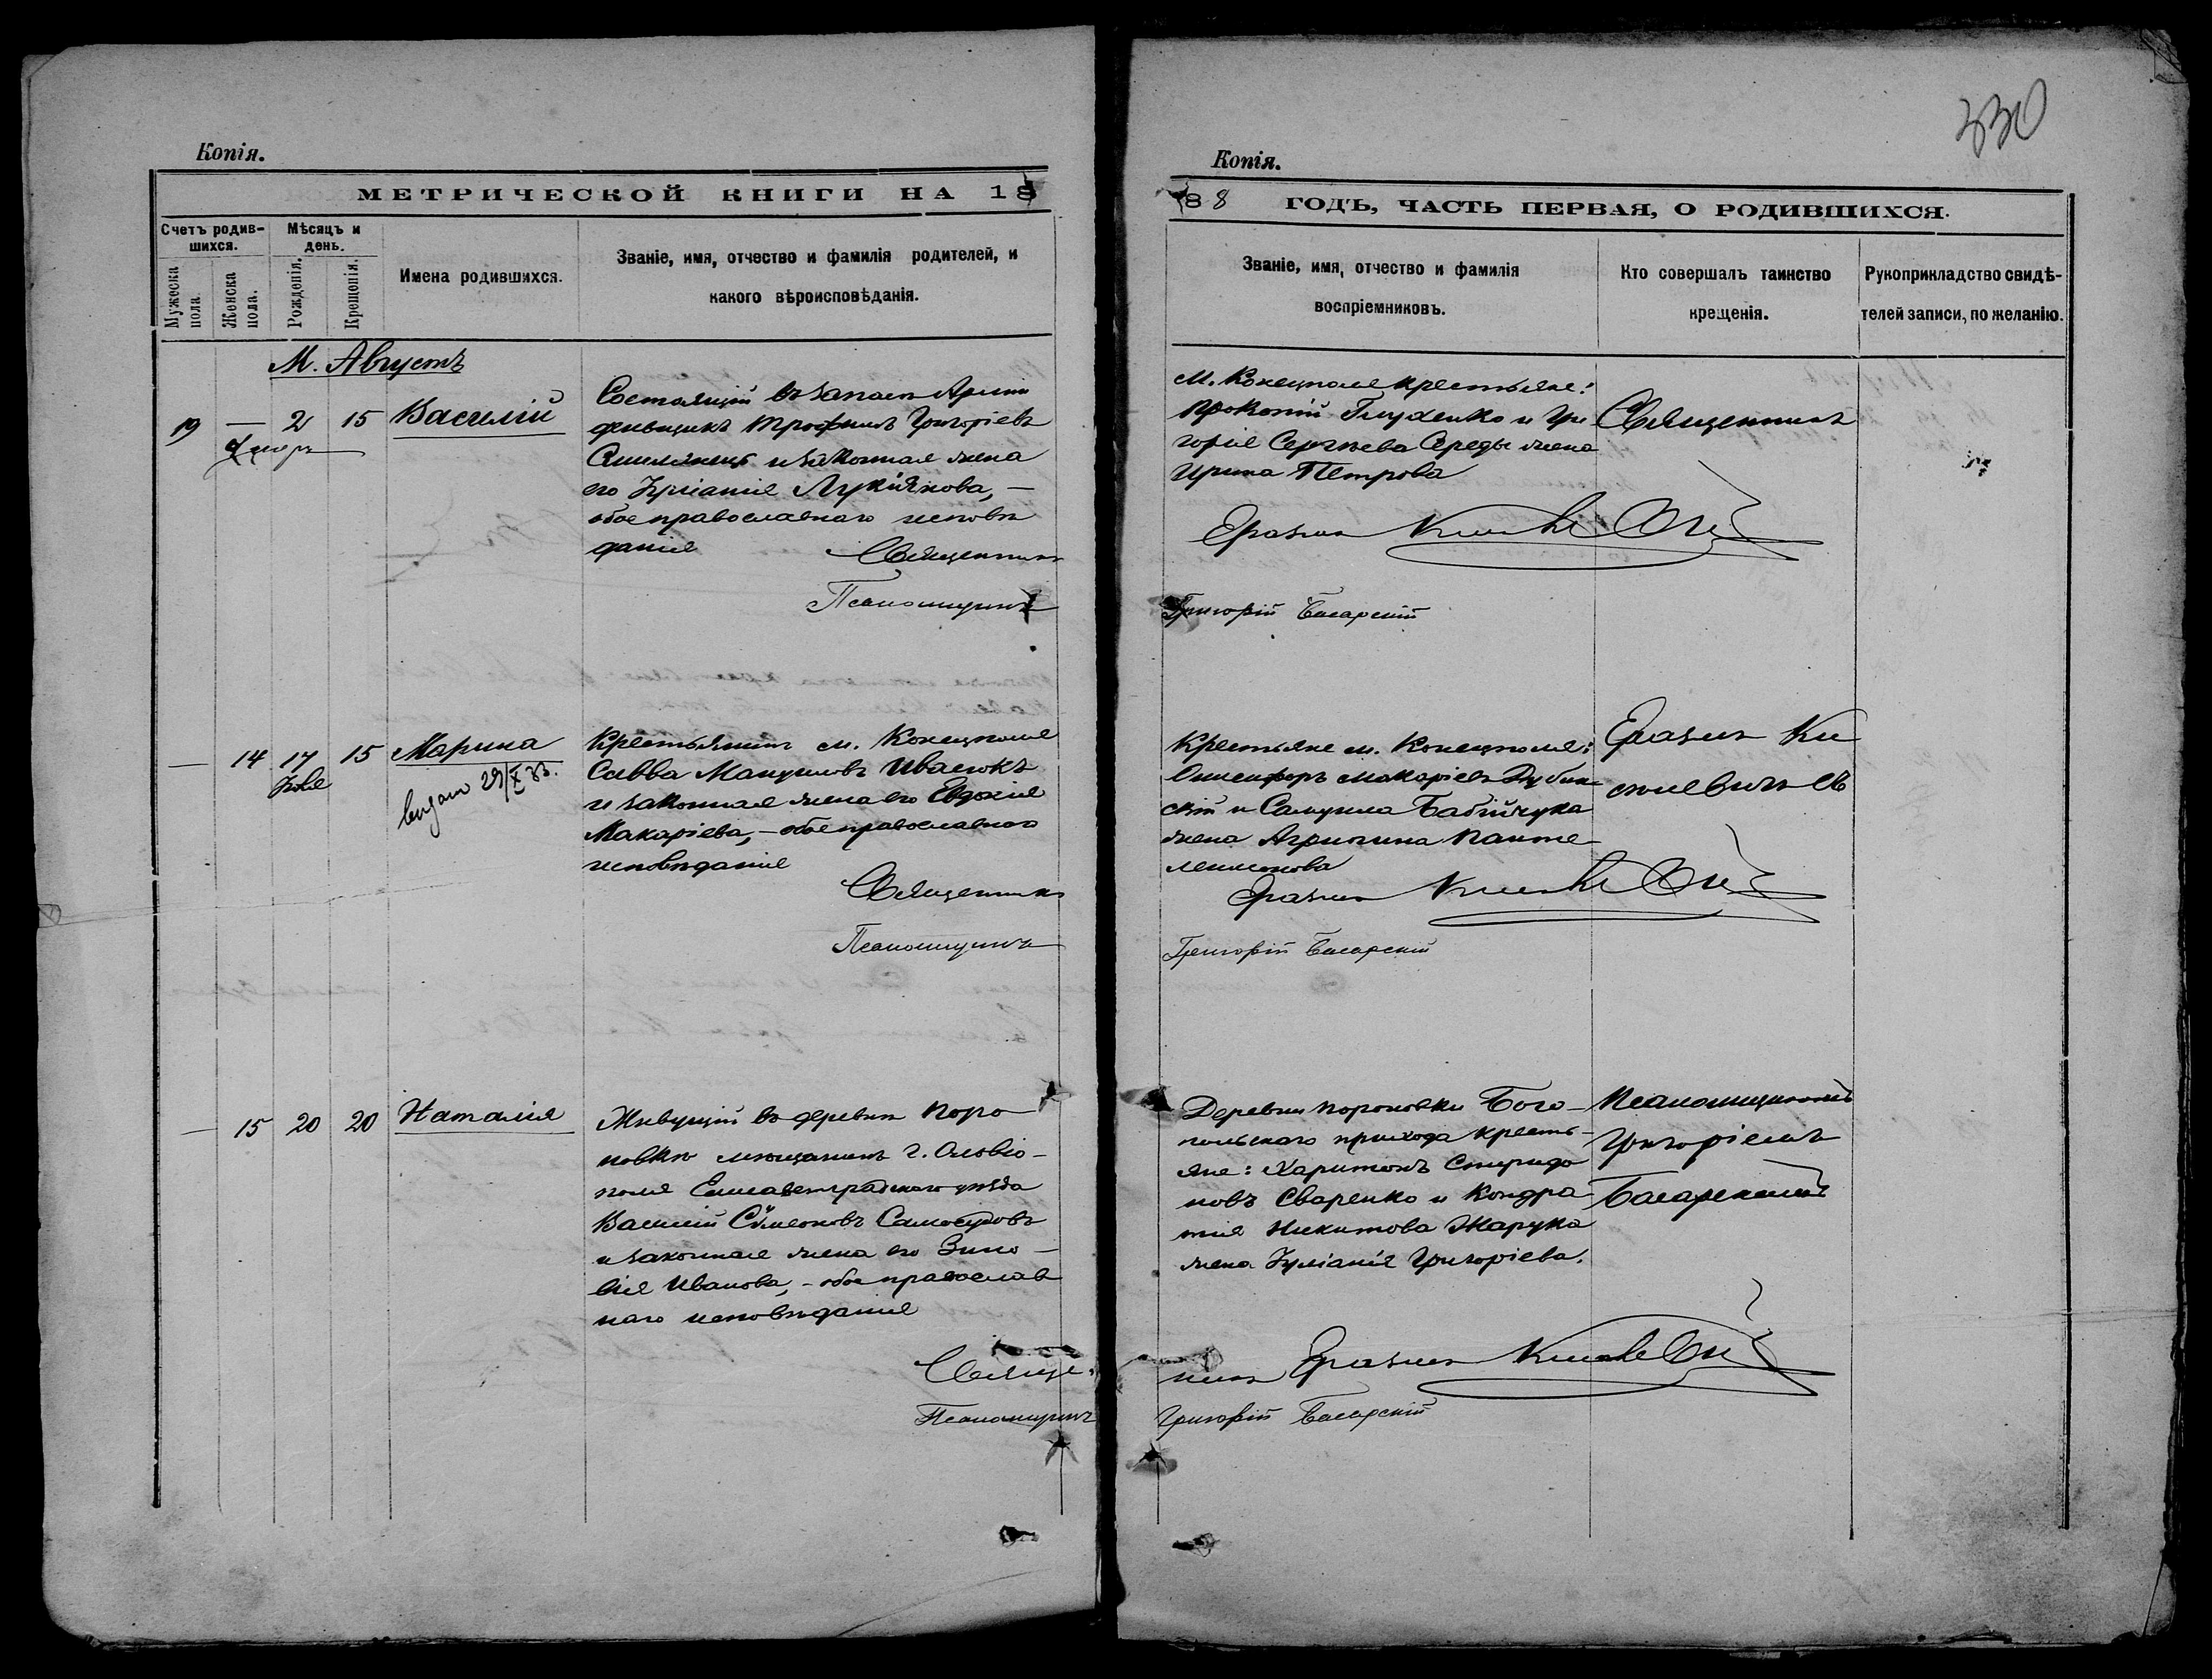 330
Копія.
МЕТРИЧЕСКОЙ КНИГИ НА 18
Счетъ родив-
шихся.
Мужеска
пола.
Женска
пола.
Мѣсяцъ и
день.
Рожденія.
Крещенія.
Имена родившихся.
Званіе, имя, отчество и фамилія родителей, и
какого вѣроисповѣданія.
М. Августъ
19 — 2 15 Василій
умеръ
Состоящій въ запасѣ Арміи
Трофимъ Григоріевъ
и законная жена
его Іуліанія Лукіянова, —
обое православнаго исповѣ
данія
Священникъ
Псаломщикъ
— 14 17 15 Марина
Іюля
выдан 29/X 33.
Крестьянинъ м. Конецполя
Савва Мануиловъ Ивасюкъ
и законная жена его Евдокія
Макаріева, — обое православнаго
исповѣданія
Священникъ
Псаломщикъ
— 15 20 20 Наталія
Живущій въ деревнѣ Поро
новкѣ мѣщанинъ г. Ольвіо-
поля Елисаветградскаго уѣзда
Василій Сѵмеоновъ Самосудовъ
и законная жена его Зино-
вія Иванова, — обое православ
наго исповѣданія
Священ-
Псаломщикъ
Копія.
88 ГОДЪ, ЧАСТЬ ПЕРВАЯ, О РОДИВШИХСЯ.
Званіе, имя, отчество и фамилія
воспріемниковъ.
Кто совершалъ таинство
крещенія.
Рукоприкладство свидѣ-
телей записи, по желанію.
м. Конецполя крестьяне:
Прокопій Глущенко и Гри
горія Сергѣева Середы жена
Ирина Петрова
Священникъ
Еразмъ
Григорій Басарскій
Крестьяне м. Конецполя:
Онисифоръ Макаріевъ Дубин-
скій и Самуила Бабійчука
жена Агрипина Панте
леимонова
Еразмъ Ки
Еразмъ
Григорій Басарскій
Деревни Пороновки Бого-
польскаго прихода кресть-
яне: Харитонъ Спиридо
новъ Сваренко и Кондра
тія Никитова Жарука
жена Іуліанія Григоріева.
Псаломщикомъ
Григоріемъ
Басарскимъ
никъ Еразмъ
Григорій Басарскій